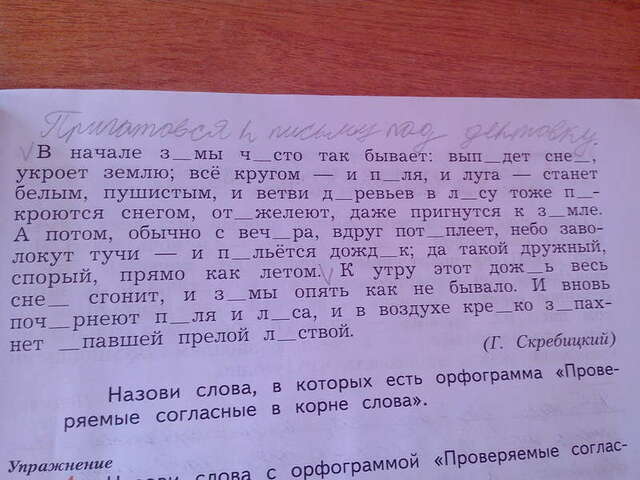 Пригатовся к письму под дектовку.
В начале з_мы ч_сто так бывает: вып_дет сне_,
укроет землю; всё кругом — и п_ля, и луга — станет
белым, пушистым, и ветви д_ревьев в л_су тоже п_-
кроются снегом, от_желеют, даже пригнутся к з_мле.
А потом, обычно с веч_ра, вдруг пот_плеет, небо заво-
локут тучи — и п_льётся дожд_к; да такой дружный,
спорый, прямо как летом. К утру этот дож_ь весь
сне_ сгонит, и з_мы опять как не бывало. И вновь
поч_рнеют п_ля и л_са, и в воздухе кре_ко з_пах-
нет _павшей прелой л_ствой.
(Г. Скребицкий)
Назови слова, в которых есть орфограмма «Прове-
ряемые согласные в корне слова».
Упражнение
Назови слова с орфограммой «Проверяемые соглас-